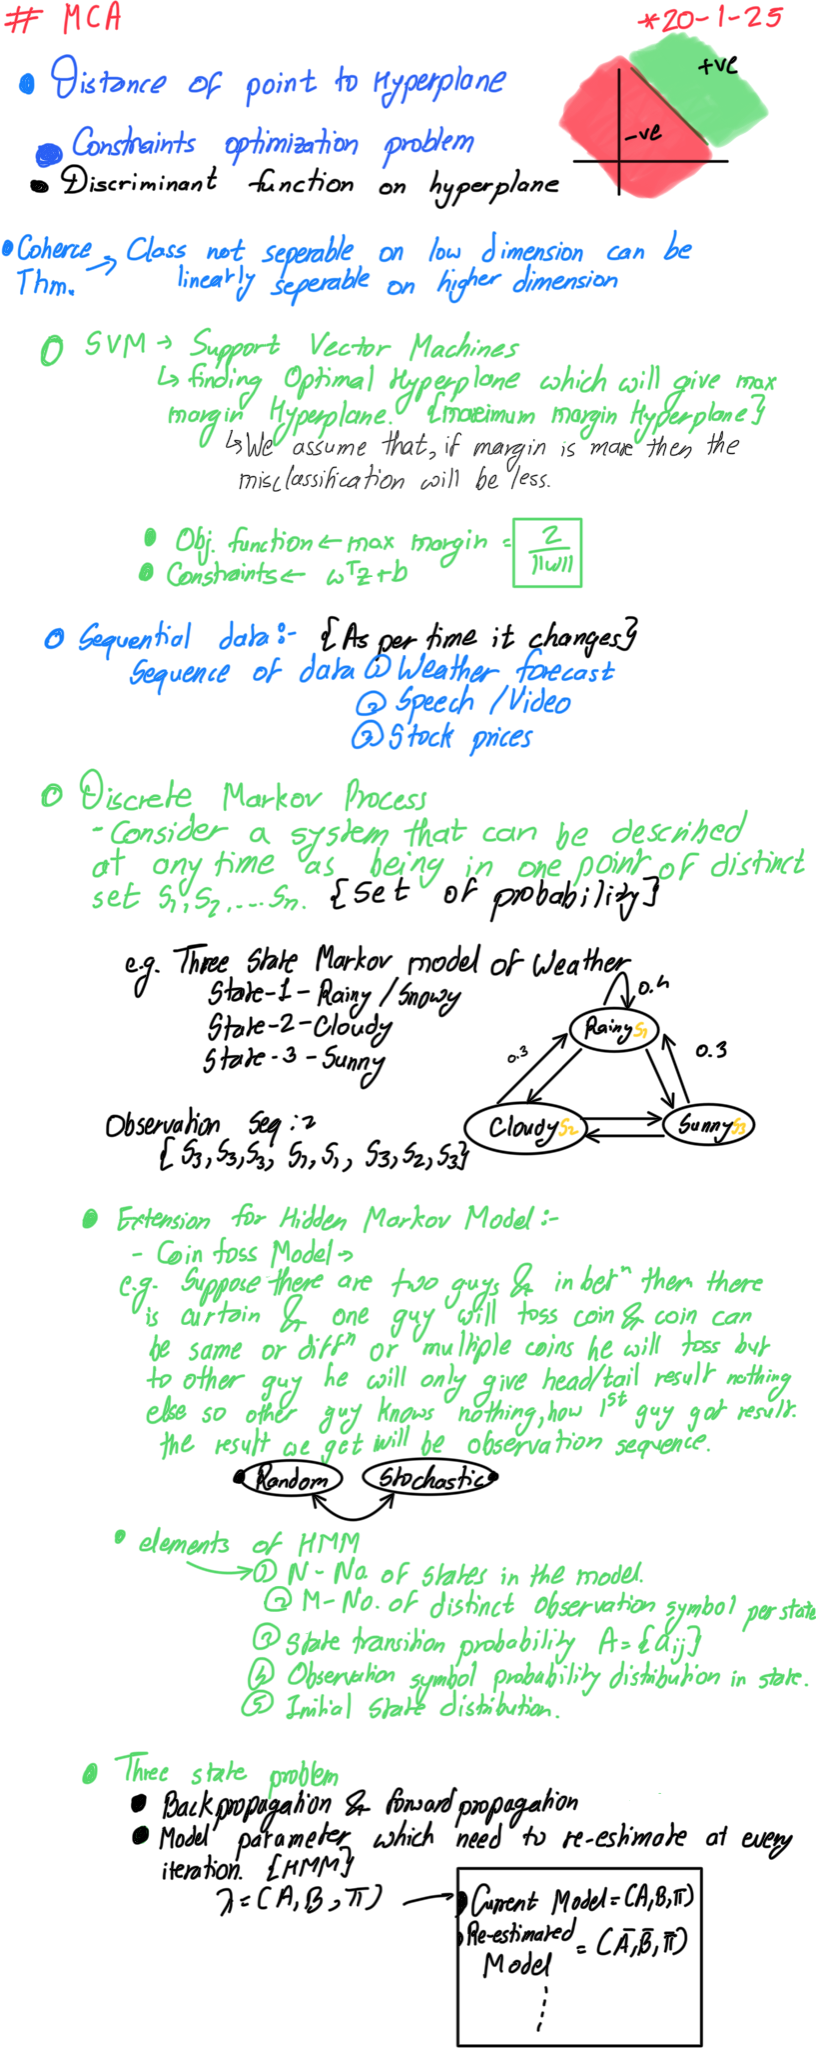 # MCA
*20-1-25
• Distance of point to Hyperplane
+ve
-ve
• Constraints optimization problem
• Discriminant function on hyperplane
• Coherce Thm. → Class not seperable on low dimension can be
linearly seperable on higher dimension
○ SVM → Support Vector Machines
↳ finding Optimal Hyperplane which will give max
margin Hyperplane. {maximum margin Hyperplane}
↳ We assume that, if margin is more then the
misclassification will be less.
• Obj. function ← max margin = 2/||w||
• Constraints ← wᵀz+b
○ Sequential data:- {As per time it changes}
Sequence of data ① Weather forecast
② Speech / Video
③ Stock prices
○ Discrete Markov Process
- Consider a system that can be described
at any time as being in one point of distinct
set S1, S2, .... Sn. {Set of probability}
e.g. Three State Markov model of Weather
State-1 - Rainy / Snowy
State-2 - Cloudy
State-3 - Sunny
0.4
Rainy S1
0.3
0.3
Cloudy S2
Sunny S3
Observation Seq:2
{S3, S3, S3, S1, S1, S3, S2, S3}
• Extension for Hidden Markov Model:-
- Coin toss Model →
e.g. Suppose there are two guys & in betⁿ them there
is curtain & one guy will toss coin & coin can
be same or diffⁿ or multiple coins he will toss but
to other guy he will only give head/tail result nothing
else so other guy knows nothing, how 1st guy got result.
the result we get will be observation sequence.
• Random Stochastic •
• elements of HMM
→ ① N - No. of states in the model.
② M - No. of distinct observation symbol per state
③ State transition probability A = {aij}
④ Observation symbol probability distribution in state.
⑤ Initial state distribution.
• Three state problem
• Backpropagation & forward propagation
• Model parameter which need to re-estimate at every
iteration. {HMM}
λ = (A, B, π) →
• Current Model = (A, B, π)
• Re-estimated Model = (Ā, B̄, π̄)